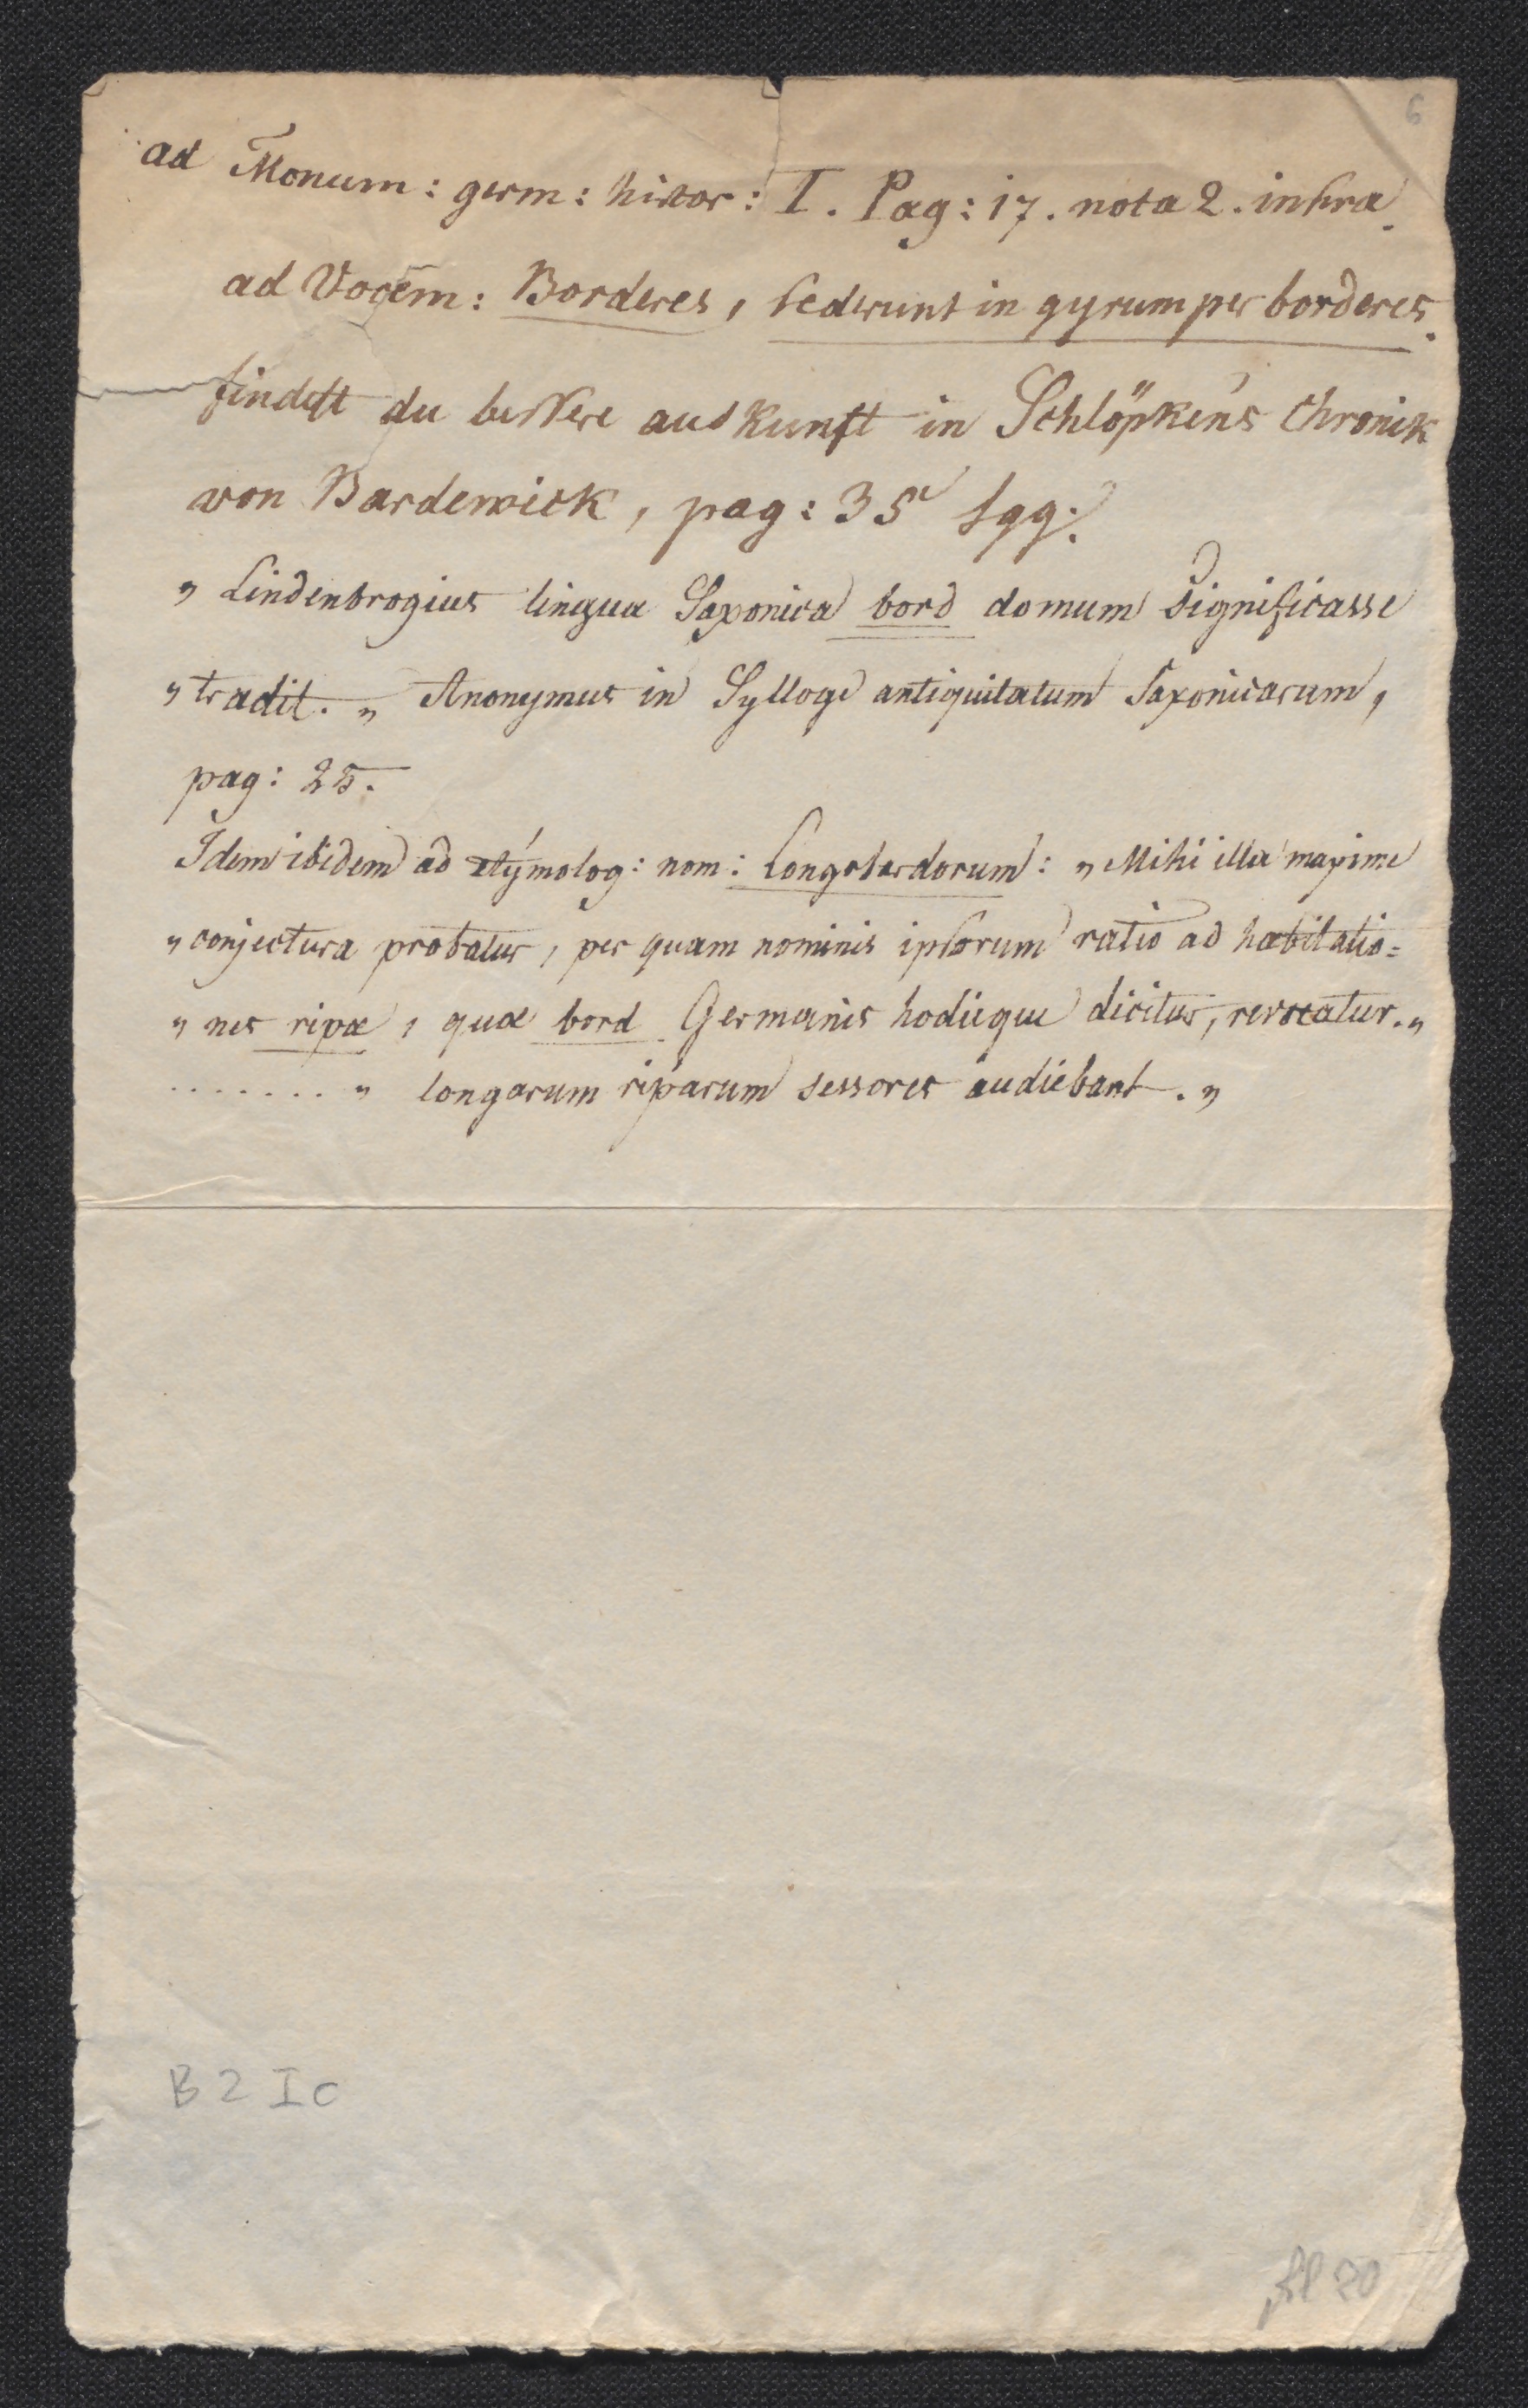 6
ad Monum: germ: histor: I. Pag: 17. nota 2. infra.
ad Vocem: Borderes, sederunt in gyrum per borderes.
findest du bessere auskunft in Schlöpken's Chronik
von Bardewick, pag: 35 sqq.
„ Lindenbrogius lingua Saxonica bord domum significasse
„ tradit. „ Anonymus in Sylloge antiquitatum Saxonicarum,
pag: 25.
Idem ibidem ad etymolog: nom: Longobardorum: „ Mihi illa maxime
„ conjectura probatur, per quam nominis ipsorum ratio ad habitatio=
„ nes ripæ, quæ bord Germanis hodieque dicitur, revocatur. „
....... „ longarum riparum sessores audiebant. „
B 2 I c